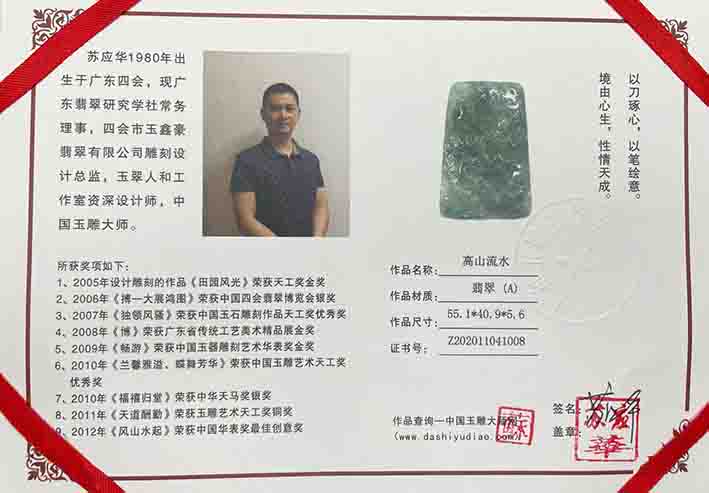 苏应华1980年出
生于广东四会，现广
东翡翠研究学社常务
理事，四会市玉鑫豪
翡翠有限公司雕刻设
计总监，玉翠人和工
作室资深设计师，中
国玉雕大师。
以刀琢心，以笔绘意。
境由心生，性情天成。
所获奖项如下：
1、2005年设计雕刻的作品《田园风光》荣获天工奖金奖
2、2006年《搏一大展鸿图》荣获中国四会翡翠博览会银奖
3、2007年《独领风骚》荣获中国玉石雕刻作品天工奖优秀奖
4、2008年《博》荣获广东省传统工艺美术精品展金奖
5、2009年《畅游》荣获中国玉器雕刻艺术华表奖金奖
6、2010年《兰馨雅溢、蝶舞芳华》荣获中国玉雕艺术天工奖
优秀奖
7、2010年《福禧归堂》荣获中华天马奖银奖
8、2011年《天道酬勤》荣获玉雕艺术天工奖铜奖
9、2012年《风山水起》荣获中国华表奖最佳创意奖
作品名称：高山流水
作品材质：翡翠（A）
作品尺寸：55.1*40.9*5.6
证书号：Z202011041008
作品查询—中国玉雕大师网
（www.dashiyudiao.com）
签名：
盖章：
苏应華